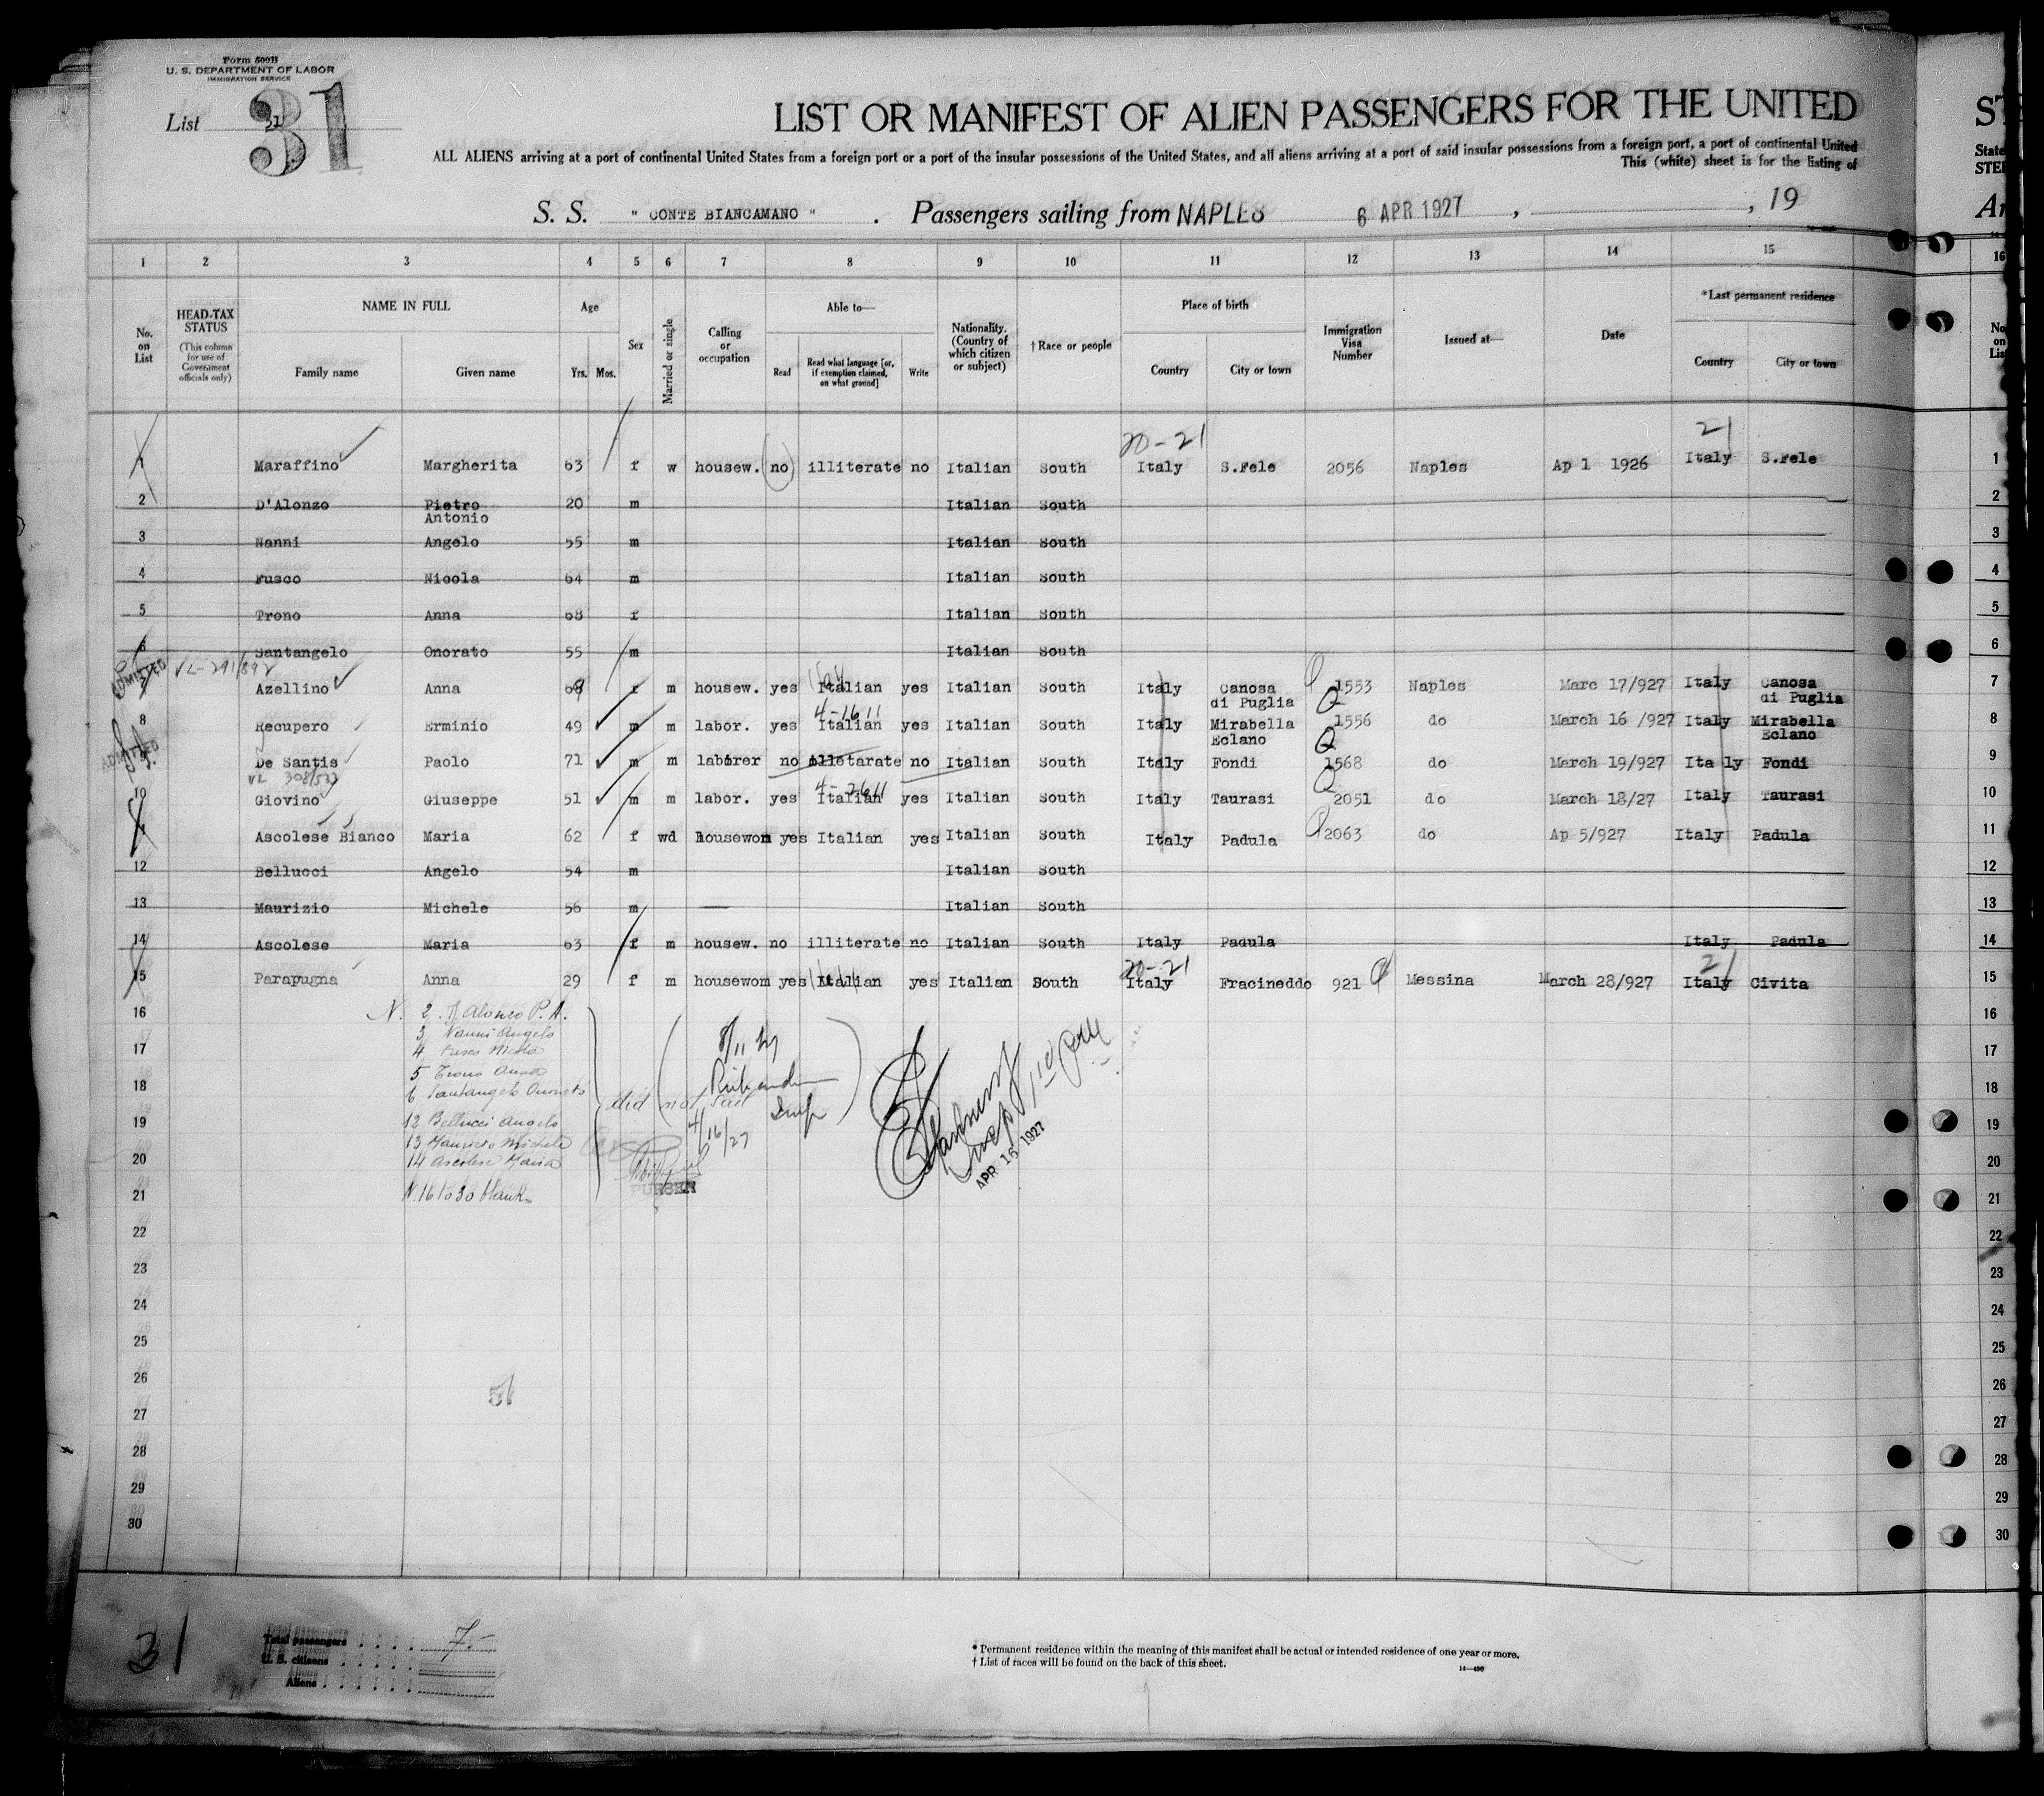 Form 500B
U. S. DEPARTMENT OF LABOR
IMMIGRATION SERVICE
List 31
31
LIST OR MANIFEST OF ALIEN PASSENGERS FOR THE UNITED
ALL ALIENS arriving at a port of continental United States from a foreign port or a port of the insular possessions of the United States, and all aliens arriving at a port of said insular possessions from a foreign port, a port of continental United
This (white) sheet is for the listing of
S. S. " CONTE BIANCAMANO " . Passengers sailing from NAPLES 6 APR 1927 , , 19
1 2 3 4 5 6 7 8 9 10 11 12 13 14 15 16
No. on List
HEAD-TAX STATUS (This column for use of Government officials only)
NAME IN FULL
Family name Given name
Age
Yrs. Mos.
Sex
Married or single
Calling or occupation
Able to—
Read
Read what language [or, if exemption claimed, on what ground]
Write
Nationality. (Country of which citizen or subject)
† Race or people
Place of birth
Country City or town
Immigration Visa Number
Issued at—
Date
*Last permanent residence
Country City or town
20-21 21
1 Maraffino Margherita 63 f w housew. no illiterate no Italian South Italy S.Fele 2056 Naples Ap 1 1926 Italy S.Fele 1
2 D'Alonzo Pietro Antonio 20 m Italian South 2
3 Nanni Angelo 55 m Italian South 3
4 Fusco Nicola 64 m Italian South 4
5 Trono Anna 68 f Italian South 5
6 Santangelo Onorato 55 m Italian South 6
ADMITTED VL-291/892
7 Azellino Anna f m housew. yes Italian yes Italian South Italy Canosa di Puglia 1553 Naples Marc 17/927 Italy Canosa di Puglia 7
4-1611
8 Recupero Erminio 49 m m labor. yes Italian yes Italian South Italy Mirabella Eclano 1556 do March 16 /927 Italy Mirabella Eclano 8
ADMITTED
9 De Santis Paolo 71 m m laborer no illetarate no Italian South Italy Fondi 1568 do March 19/927 Ita ly Fondi 9
VL 308/533
4-2611
10 Giovino Giuseppe 51 m m labor. yes Italian yes Italian South Italy Taurasi 2051 do March 18/27 Italy Taurasi 10
Ascolese Bianco Maria 62 f wd housewom yes Italian yes Italian South Italy Padula 2063 do Ap 5/927 Italy Padula 11
12 Bellucci Angelo 54 m Italian South 12
13 Maurizio Michele 56 m — Italian South 13
14 Ascolese Maria 63 f m housew. no illiterate no Italian South Italy Padula Italy Padula 14
20-21 21
15 Parapugna Anna 29 f m housewom yes Italian yes Italian South Italy Fracineddo 921 Messina March 28/927 Italy Civita 15
16 N. 2 D'Alonzo P. A. 16
17 3 Nanni Angelo 17
4 Fusco Nicola
5 Trono Anna
18 6 Santangelo Onorato 18
did not sail
19 12 Bellucci Angelo 19
13 Maurizio Michele
20 14 Ascolese Maria 20
21 N. 16 to 30 blank 21
4/16/27
PURSER
APR 16 1927
22 22
23 23
24 24
25 25
26 26
27 27
28 28
29 29
30 30
51
31
Total passengers 7.-
U. S. citizens
Aliens
* Permanent residence within the meaning of this manifest shall be actual or intended residence of one year or more.
† List of races will be found on the back of this sheet.
14—430